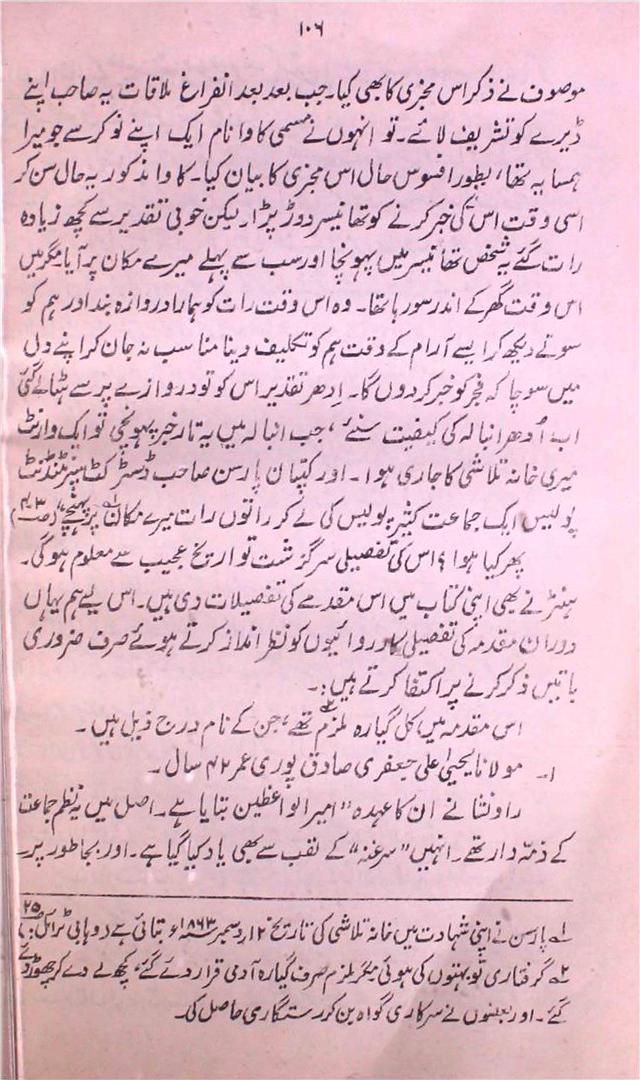 ۱۰۶
موصوف نے ذکر اس مخبری کا بھی کیا۔ جب بعد بعد انفراغ ملاقات یہ صاحب اپنے
ڈیرے کو تشریف لائے۔ تو انہوں نے مسمی کاوا نام ایک اپنے نوکر سے جو میرا
ہمسایہ تھا، بطور افسوس حال اس مخبری کا بیان کیا۔ کاوا مذکور یہ حال سن کر
اسی وقت اس کی خبر کرنے کو تھانیسر دوڑ پڑا۔ لیکن خوبی تقدیر سے کچھ زیادہ
رات گئے یہ شخص تھانیسر میں پہونچا اور سب سے پہلے میرے مکان پر آیا مگر میں
اس وقت گھر کے اندر سو رہا تھا۔ وہ اس وقت رات کو ہمارا دروازہ بند اور ہم کو
سوتے دیکھ کر ایسے آرام کے وقت ہم کو تکلیف دینا مناسب نہ جان کر اپنے دل
میں سوچا کہ فجر کو خبر کر دوں گا۔ اِدھر تقدیر اس کو تو دروازے پر سے ہٹا لے گئی
اب اُدھر انبالہ کی کیفیت سنئے، جب انبالہ میں یہ تار خبر پہونچی تو ایک وارنٹ
میری خانہ تلاشی کا جاری ہوا۔ اور کپتان پارسن صاحب ڈسٹرکٹ سپرنٹنڈنٹ
پولیس ایک جماعت کثیر پولیس کی لے کر راتوں رات میرے مکان پر پہنچے" (ص۳،۴)
پھر کیا ہوا؟ اس کی تفصیلی سرگزشت تواریخ عجیب سے معلوم ہوگی۔
ہنٹر نے بھی اپنی کتاب میں اس مقدمے کی تفصیلات دی ہیں۔ اس لیے ہم یہاں
دوران مقدمہ کی تفصیلی کارروائیوں کو نظر انداز کرتے ہوئے صرف ضروری
باتیں ذکر کرنے پر اکتفا کرتے ہیں:۔
اس مقدمہ میں کل گیارہ ملزم۲ تھے، جن کے نام درج ذیل ہیں۔
۱۔ مولانا یحییٰ علی جعفری صادق پوری عمر ۴۲ سال۔
راونشا نے ان کا عہدہ "امیر الواعظین بتایا ہے۔ اصل میں یہ نظم جماعت
کے ذمہ دار تھے۔ انہیں "سرغنہ" کے لقب سے بھی یاد کیا گیا ہے۔ اور بجا طور پر۔
۱؎ پارسن نے اپنی شہادت میں خانہ تلاشی کی تاریخ ۱۲ دسمبر ۱۸۶۳ء بتائی ہے (وہابی ٹرائل: ۲۵)
۲؎ گرفتاری تو بہتوں کی ہوئی مگر ملزم صرف گیارہ آدمی قرار دئے گئے، کچھ لے دے کر چھوڑ دئے
گئے۔ اور بعضوں نے سرکاری گواہ بن کر رستگاری حاصل کی۔